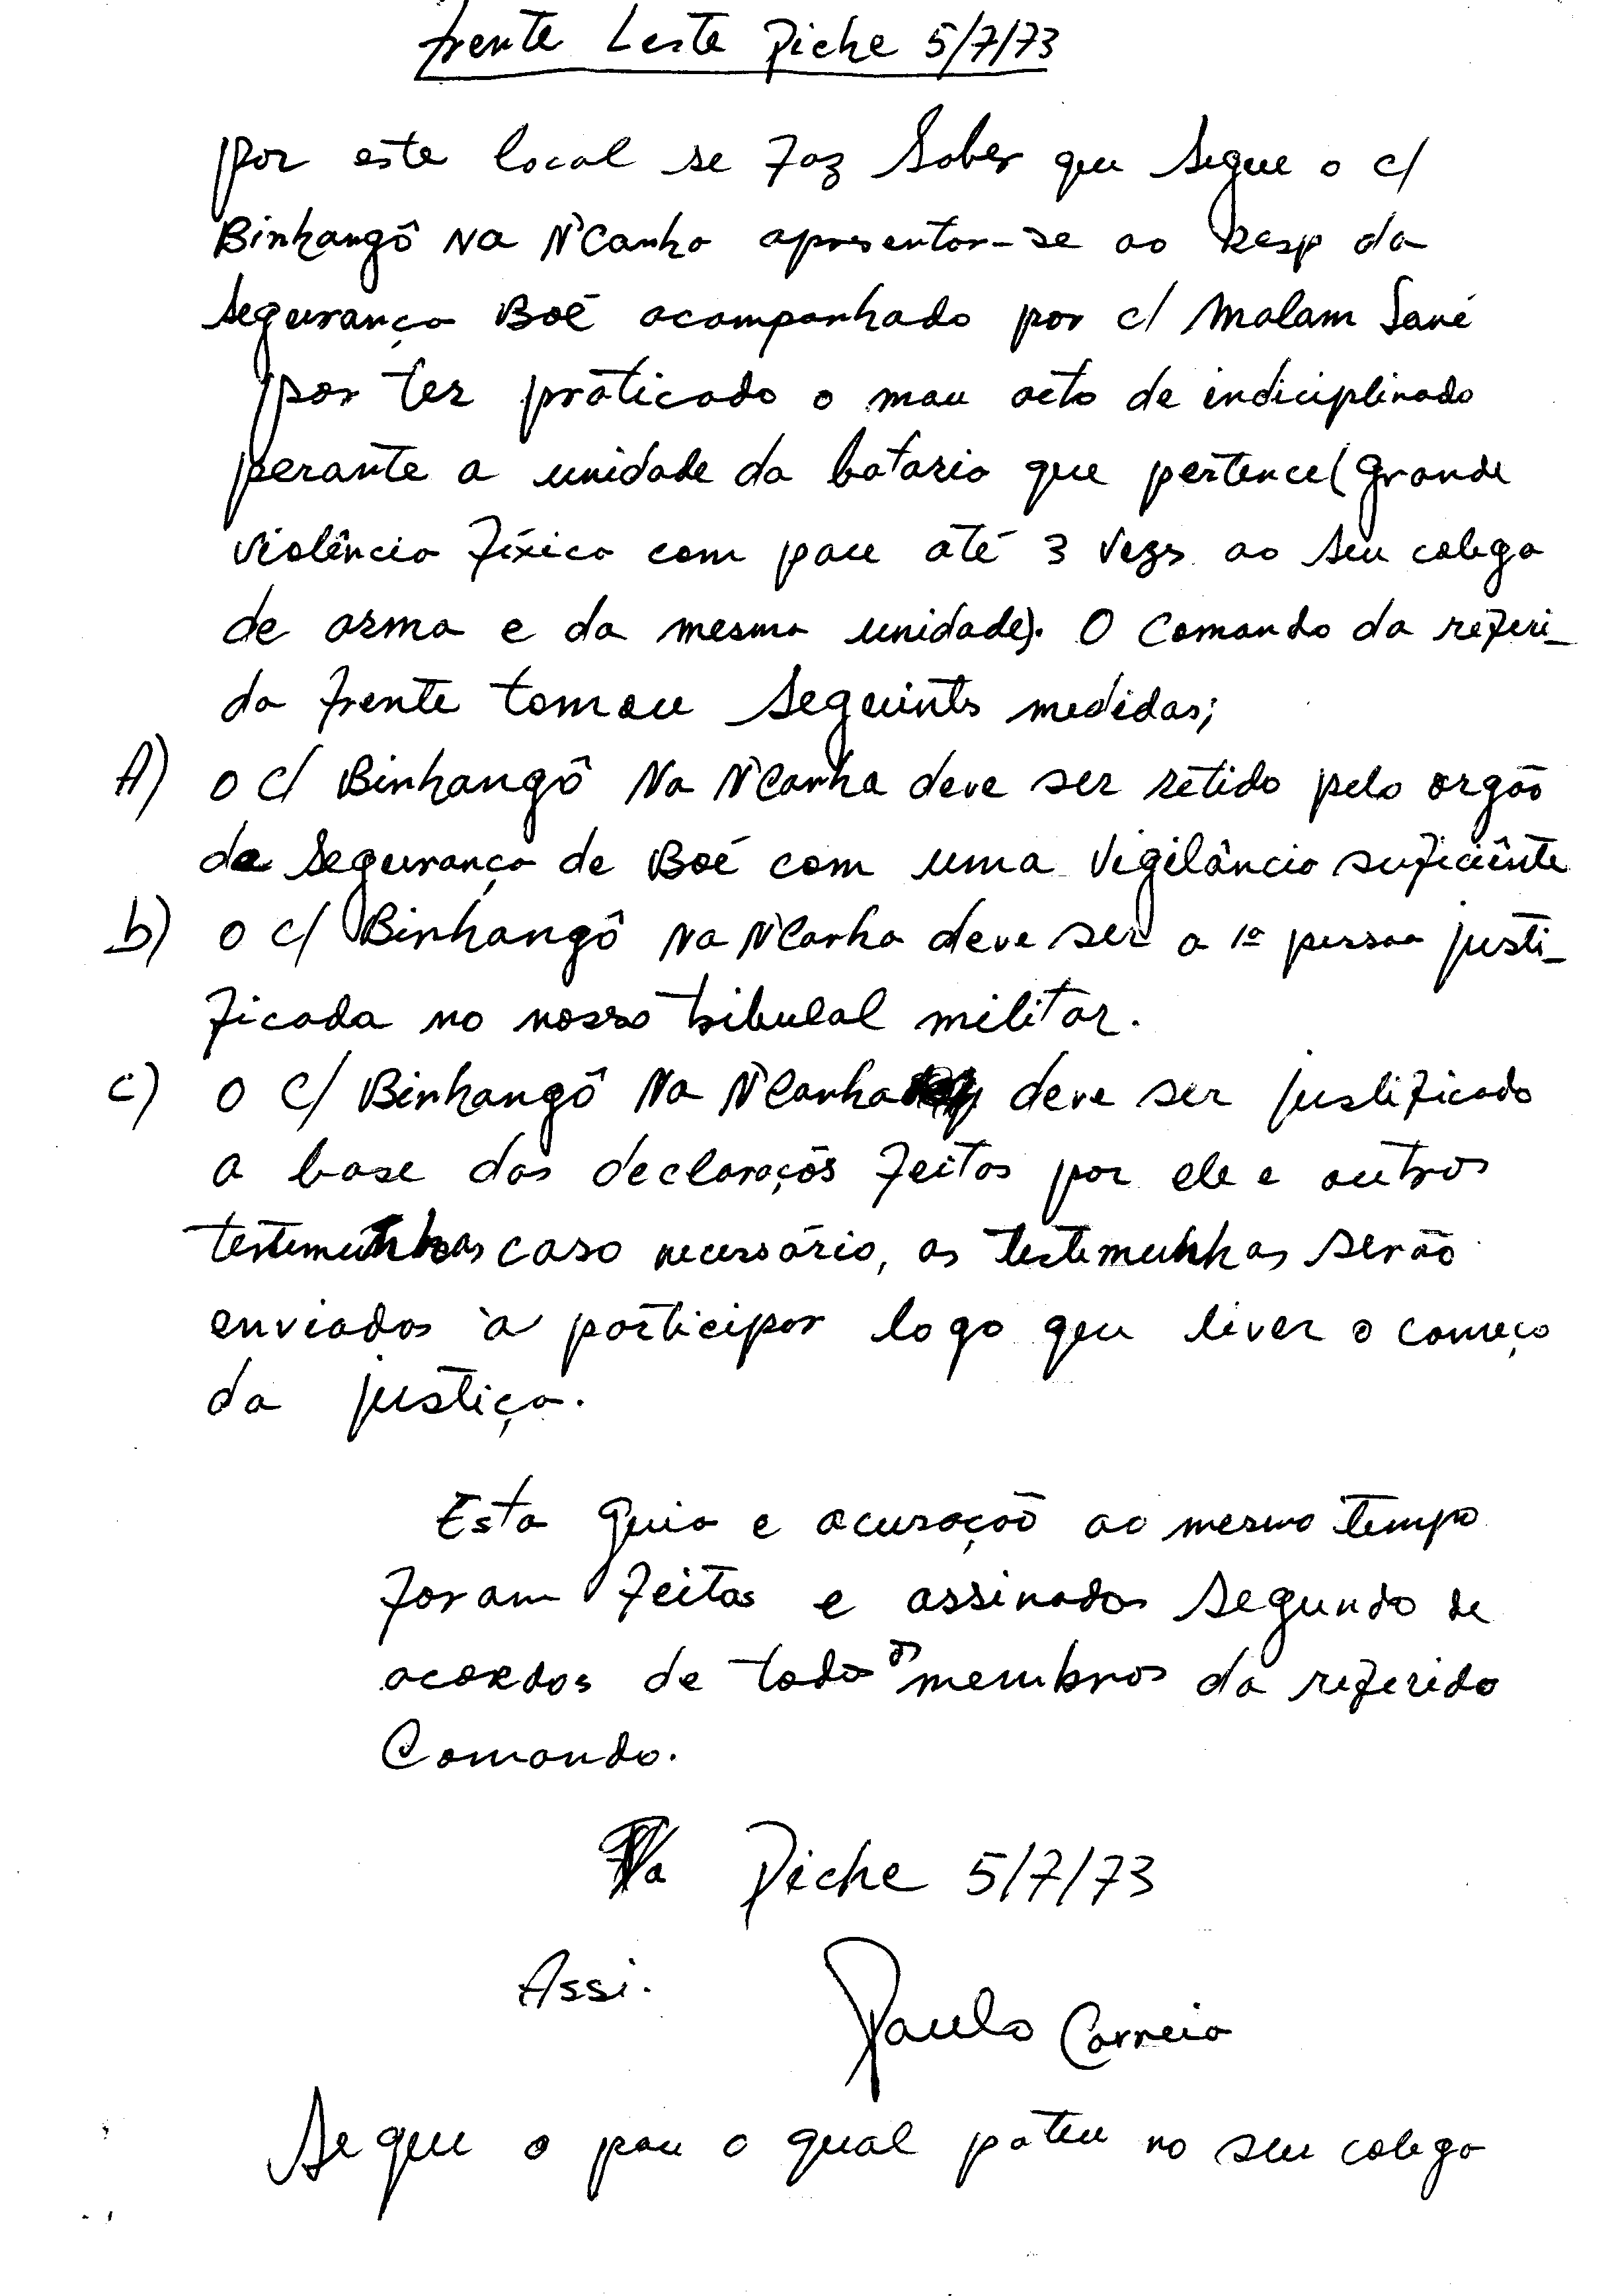 Frente Leste Piche 5/7/73
por este local se faz saber que segue o c/
Binhangô Na N'Canha apresentar-se ao Resp da
Segurança Boé acompanhado por c/ Malam Sané
por ter práticado o mau acto de indiciplinado
perante a unidade da bataria que pertence (grande
violência fíxica com pau até 3 vezs ao seu colega
de arma e da mesma unidade). O Comando da referi-
da frente tomou seguints medidas;
A) O C/ Binhangô Na N'Canha deve ser retido pelo orgão
da Segurança de Boé com uma vigilância suficiênte
b) O C/ Binhangô Na N'Canha deve ser a 1ª pessoa justi-
ficada no nosso tribulal militar.
c) O C/ Binhangô Na N'Canha deve ser justificado
a base das declaraçõs feitas por ele e outros
testemunhas caso necessário, as testemunhas serão
enviados à participar logo que tiver o começo
da justiça.
Esta guia e acusação ao mesmo tempo
foram feitas e assinados segundo de
acordos de todos os membros da referido
Comando.
Piche 5/7/73
Assi.
Paulo Correia
Segue o pau o qual pateu no seu colega